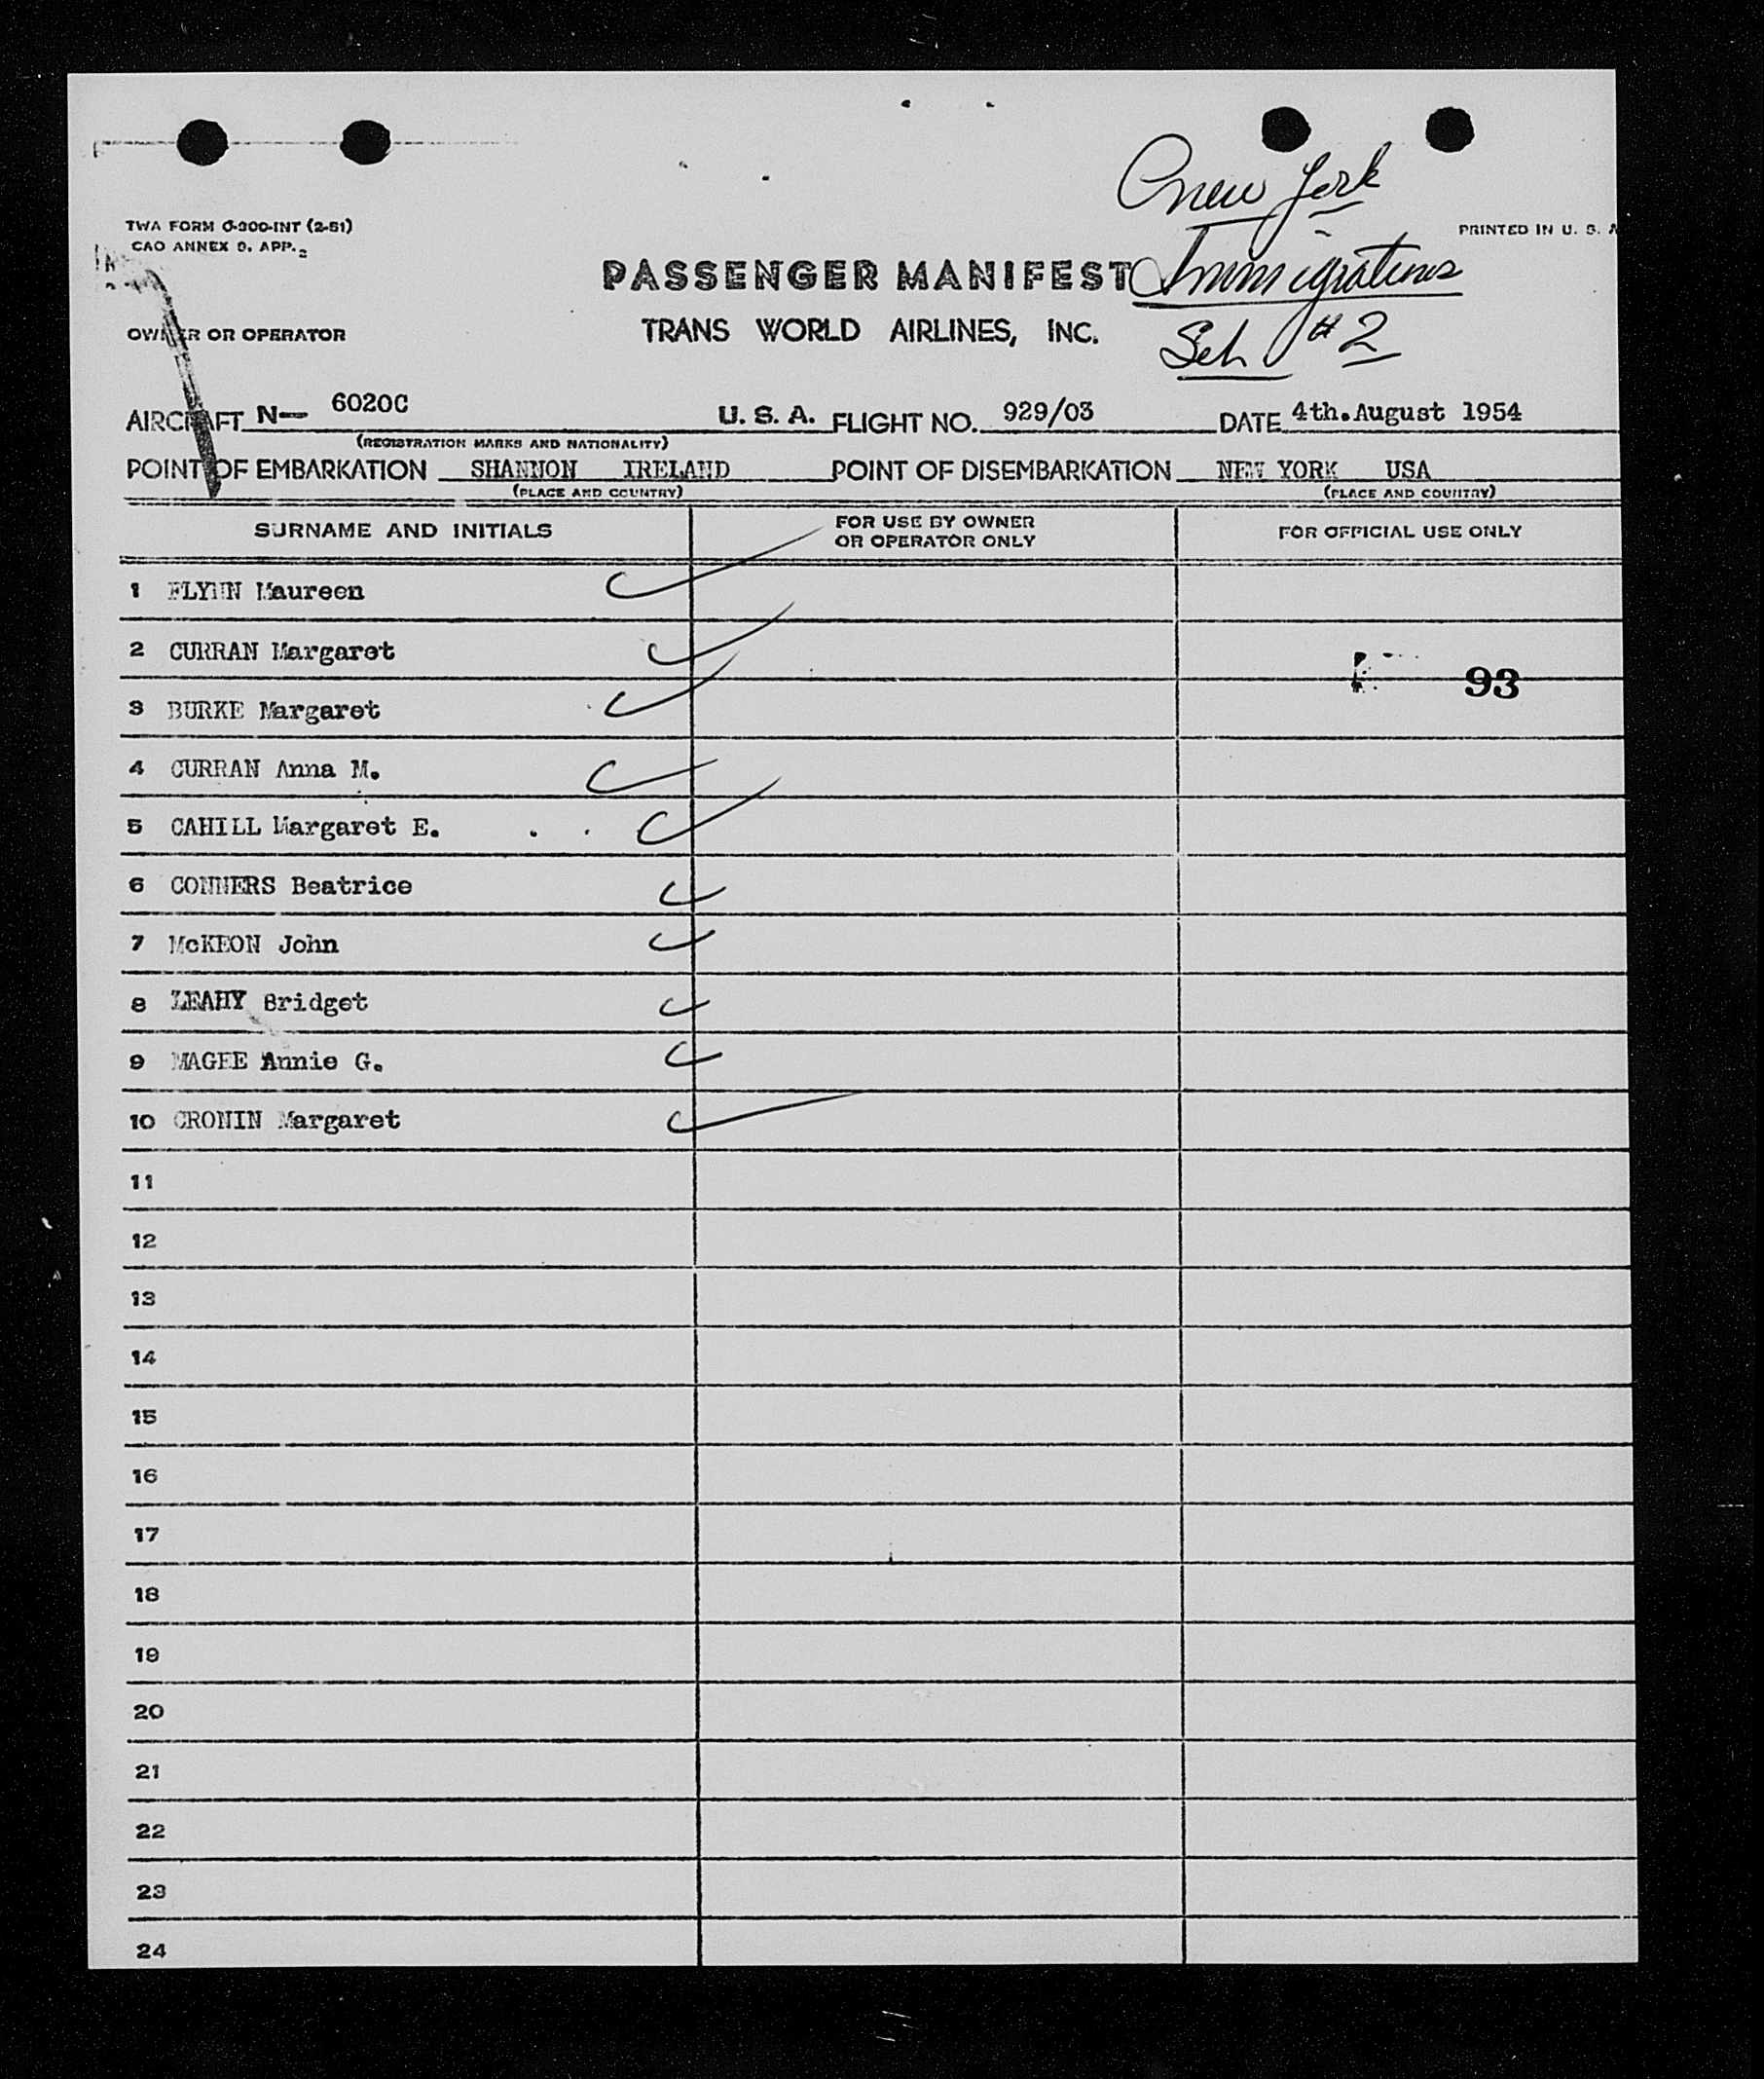 New York
TWA FORM O-300-INT (2-51)
PRINTED IN U. S. A
CAO ANNEX 9, APP. 2
PASSENGER MANIFEST
Immigrations
OWNER OR OPERATOR
TRANS WORLD AIRLINES, INC.
Sch #2
AIRCRAFT N— 6020C U. S. A. FLIGHT NO. 929/03 DATE 4th.August 1954
(REGISTRATION MARKS AND NATIONALITY)
POINT OF EMBARKATION SHANNON IRELAND POINT OF DISEMBARKATION NEW YORK USA
(PLACE AND COUNTRY) (PLACE AND COUNTRY)
SURNAME AND INITIALS FOR USE BY OWNER OR OPERATOR ONLY FOR OFFICIAL USE ONLY
1 FLYNN Maureen
2 CURRAN Margaret
93
3 BURKE Margaret
4 CURRAN Anna M.
5 CAHILL Margaret E.
6 CONNERS Beatrice
7 McKEON John
8 LEAHY Bridget
9 MAGEE Annie G.
10 CRONIN Margaret
11
12
13
14
15
16
17
18
19
20
21
22
23
24